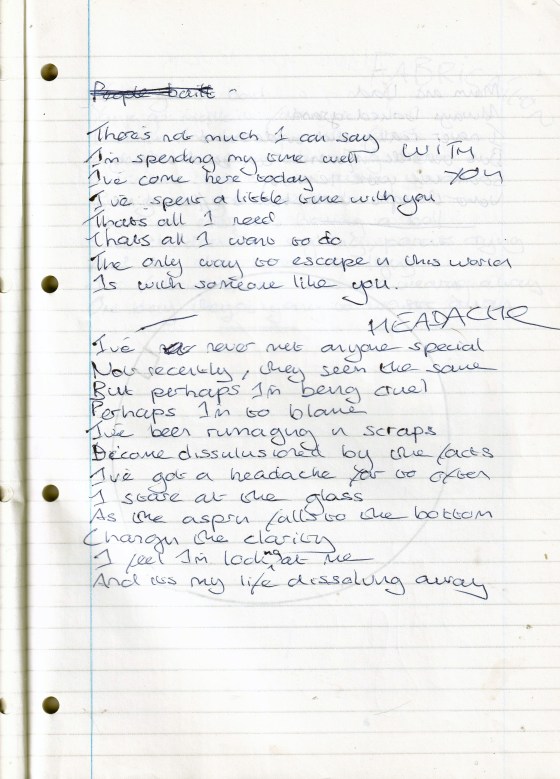 There's not much I can say
I'm spending my time well WITH
I've come here today YOU
I've spent a little time with you
Thats all I need
Thats all I want to do
The only way to escape n this world
Is with someone like you.
HEADACHE
I've never met anyone special
Not recently, they seem the same
But perhaps I'm being cruel
Perhaps I'm to blame
I've been rumaging n scraps
Become dissulusioned by the facts
I've got a headache far to often
I stare at the glass
As the asprn falls to the bottom
Changn the clarity
I feel I'm looking at me
And its my life dissolvng away